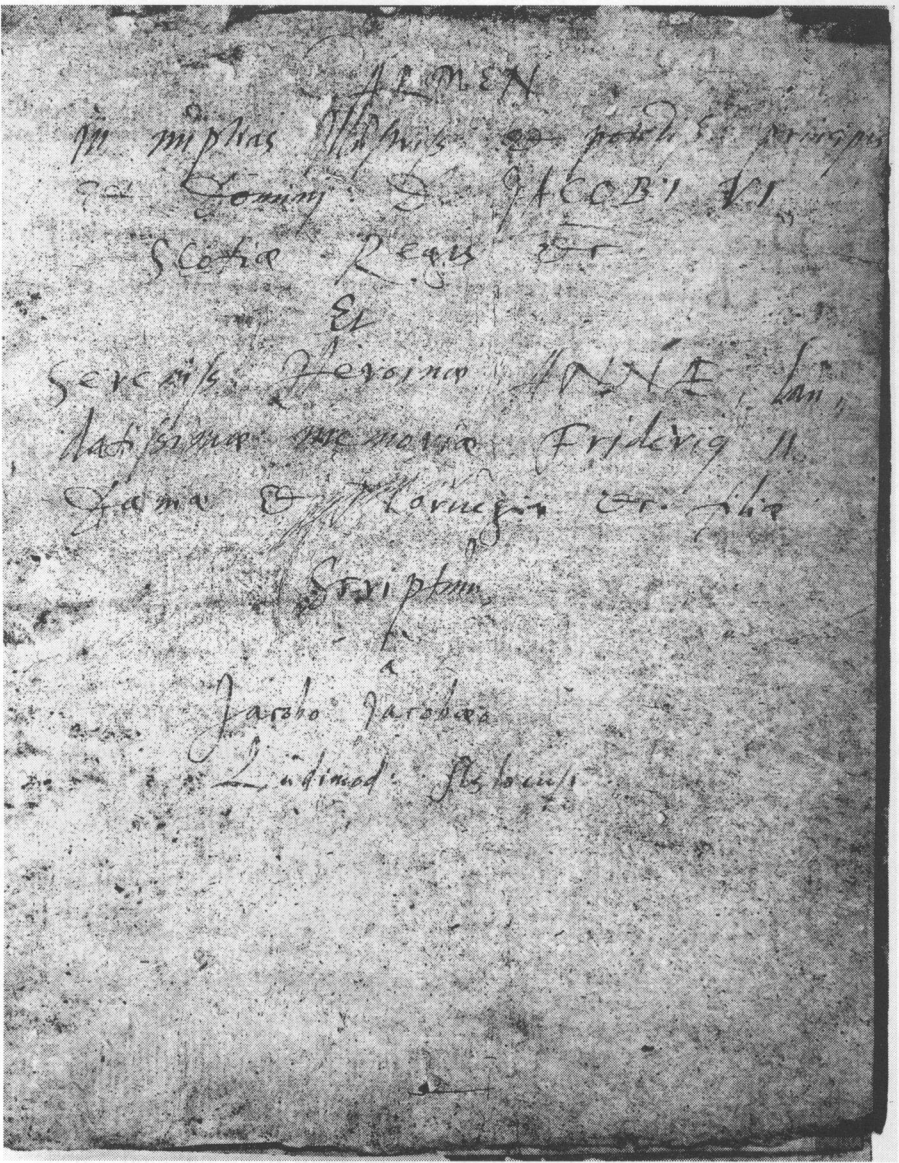 CARMEN
in nuptias Illustriss. et potentiss. principis
et Domini D. JACOBI VI
Scotiæ Regis &c
Et
Sereniss. Heroinæ ANNÆ, lau„
datissimæ memoriæ Friderici II
Daniæ & Norvegiæ &c. filiæ
Scriptum
a
Jacobo Jacobæo
Ludimod. Asloensi.